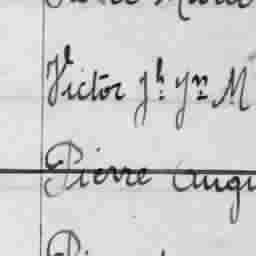 Victor Jh. Jn. M
Pierre Augu